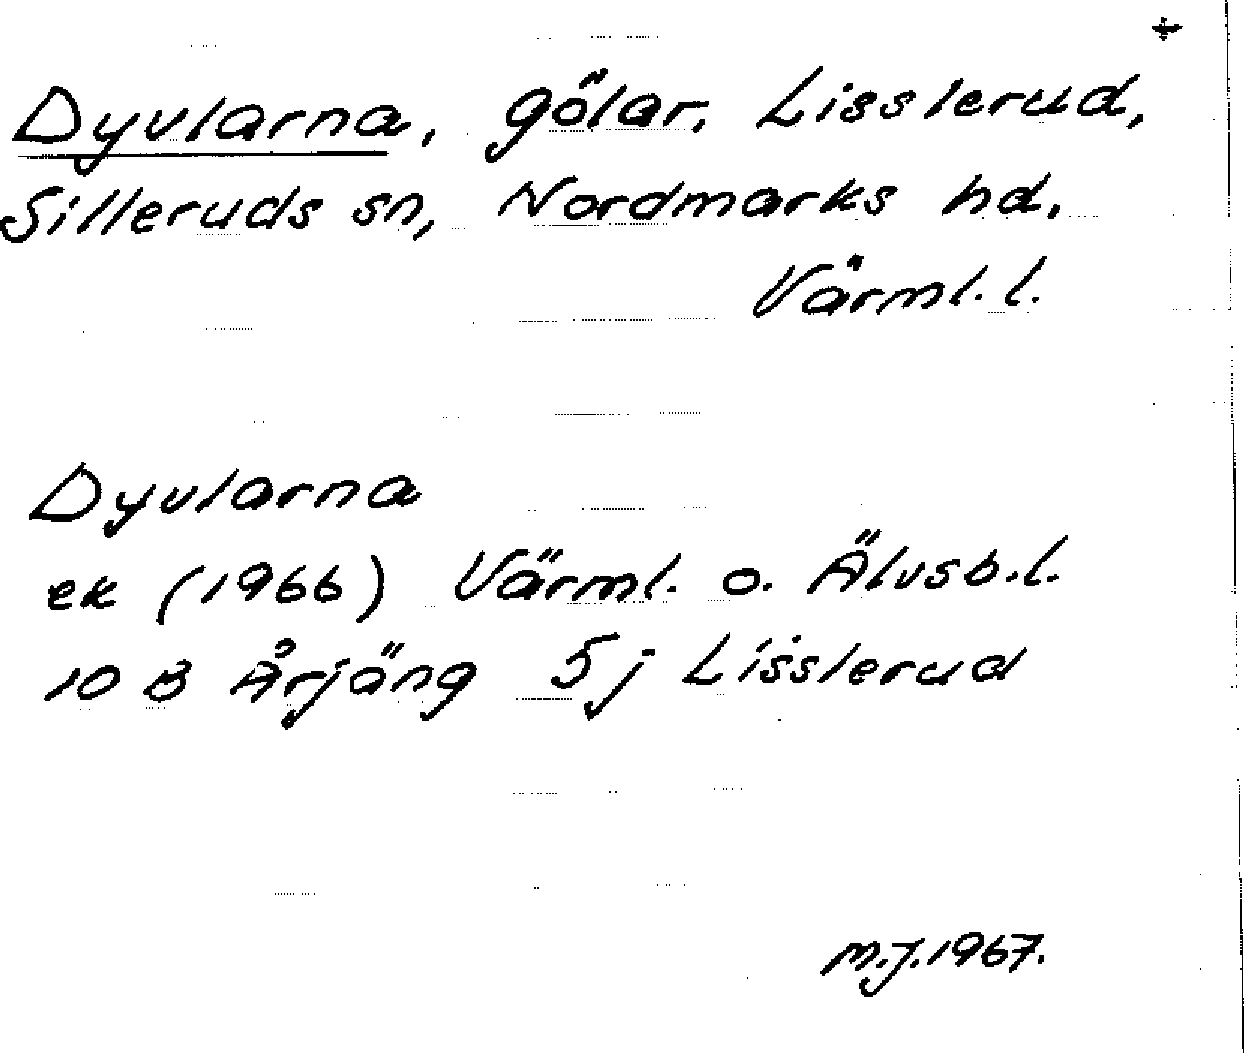 +
Dyvlarna, gölar, Lisslerud,
Silleruds sn, Nordmarks hd,
Värml. l.
Dyvlarna
ek (1966) Värml. o. Älvsb. l.
10 B Årjäng 5j Lisslerud
M.J. 1967.